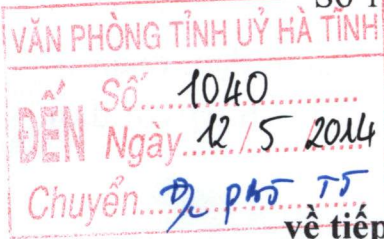 Số 1
VĂN PHÒNG TỈNH UỶ HÀ TĨNH
ĐẾN
Số.... 1040
Ngày. 12 / 5 2014
Chuyển.... Đ/c phó TT
về tiếp